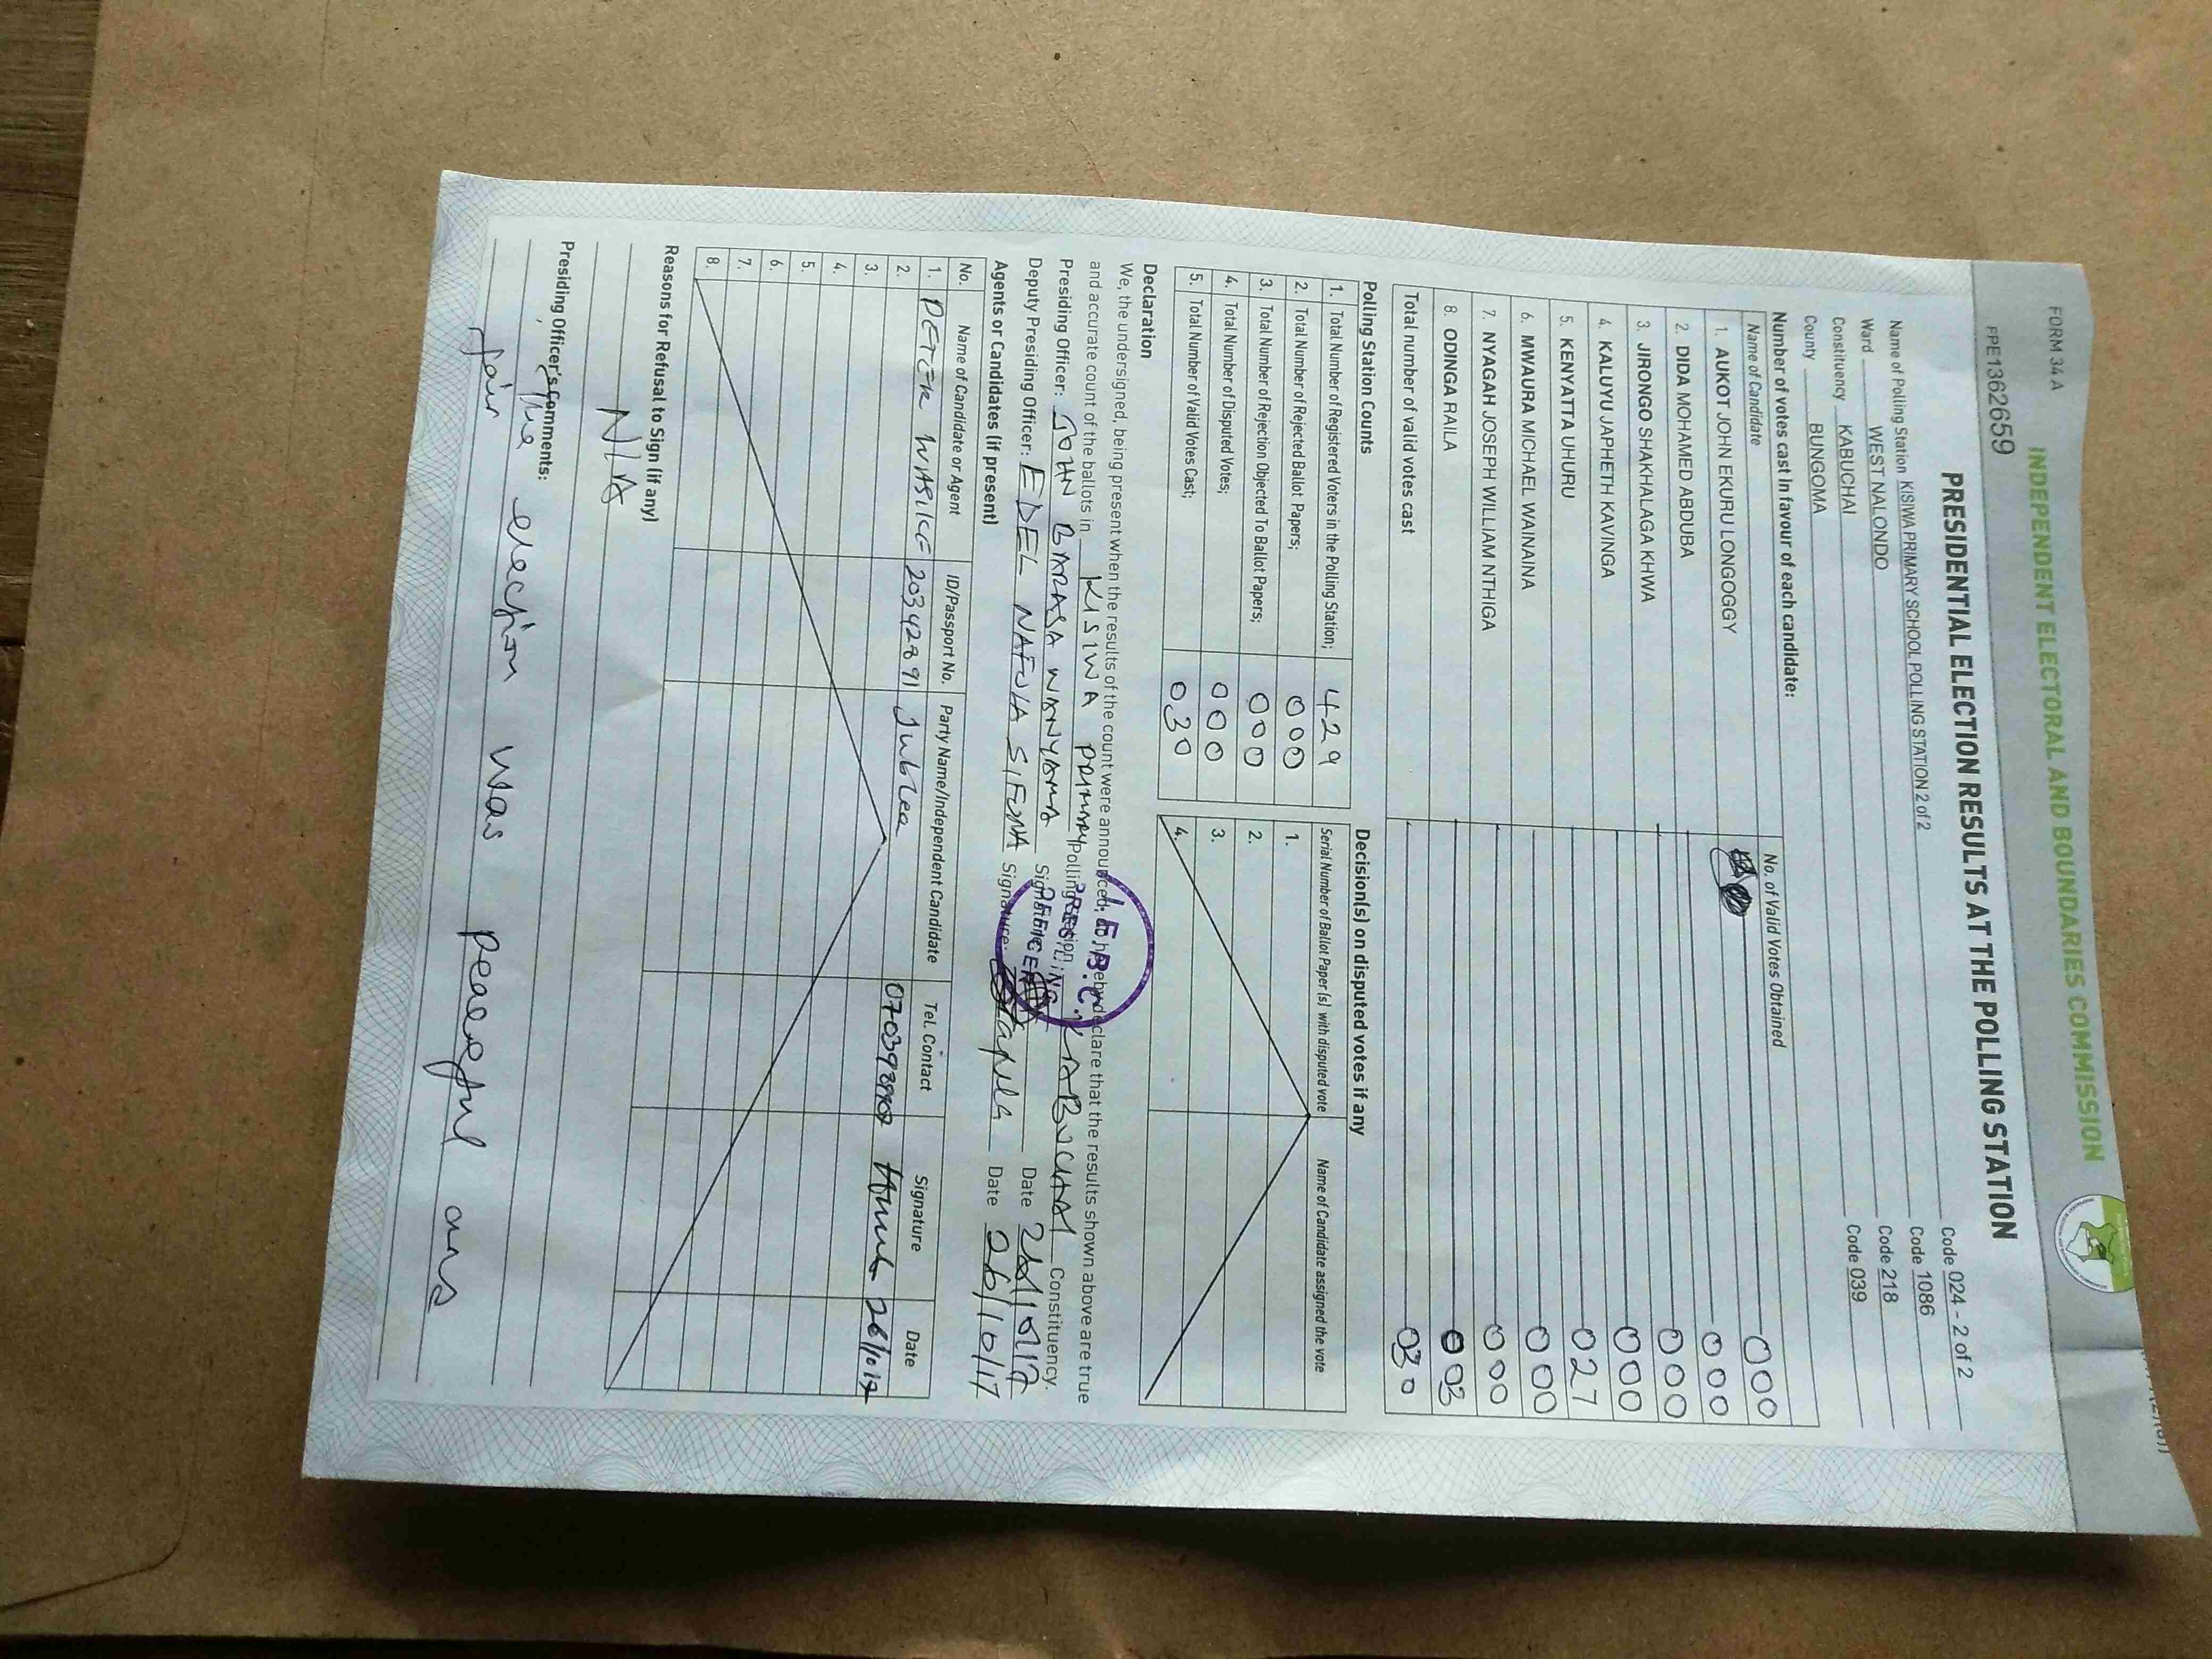 FORM 34 A
INDEPENDENT ELECTORAL AND BOUNDARIES COMMISSION
FPE1362659
PRESIDENTIAL ELECTION RESULTS AT THE POLLING STATION
Name of Polling Station KISIWA PRIMARY SCHOOL POLLING STATION 2 of 2 Code 024 - 2 of 2
Ward WEST NALONDO Code 1086
Constituency KABUCHAI Code 218
County BUNGOMA Code 039
Number of votes cast in favour of each candidate:
Name of Candidate No. of Valid Votes Obtained
1. AUKOT JOHN EKURU LONGOGGY 000
2. DIDA MOHAMED ABDUBA 000
3. JIRONGO SHAKHALAGA KHWA 000
4. KALUYU JAPHETH KAVINGA 000
5. KENYATTA UHURU 027
6. MWAURA MICHAEL WAINAINA 000
7. NYAGAH JOSEPH WILLIAM NTHIGA 000
8. ODINGA RAILA 003
Total number of valid votes cast 030
Polling Station Counts
1. Total Number of Registered Voters in the Polling Station; 429
2. Total Number of Rejected Ballot Papers; 000
3. Total Number of Rejection Objected To Ballot Papers; 000
4. Total Number of Disputed Votes; 000
5. Total Number of Valid Votes Cast; 030
Decision(s) on disputed votes if any
Serial Number of Ballot Paper (s) with disputed vote Name of Candidate assigned the vote
1.
2.
3.
4.
Declaration
We, the undersigned, being present when the results of the count were announced, do hereby declare that the results shown above are true
and accurate count of the ballots in KISIWA PRIMARY Polling Station, KABUCHAI Constituency.
Presiding Officer: JOHN BARASA WANYAMA Signature: Date 26/10/17
Deputy Presiding Officer: EDEL NAFULA SIFUNA Signature: Date 26/10/17
I.E.B.C.
PRESIDING
OFFICER
Agents or Candidates (if present)
No. Name of Candidate or Agent ID/Passport No. Party Name/Independent Candidate Tel. Contact Signature Date
1. PETER WASIKE 20342891 Jubilee 26/10/17
2.
3.
4.
5.
6.
7.
8.
Reasons for Refusal to Sign (if any)
N/A
Presiding Officer's Comments:
The election was peaceful
fair